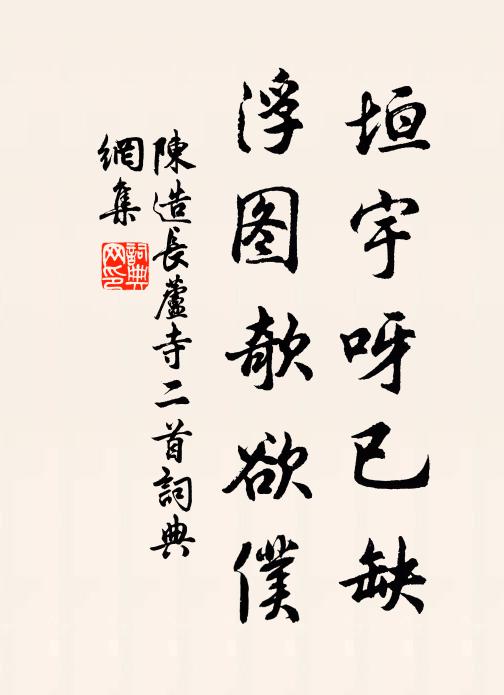 垣宇呀已缺
浮图欹欲僕
陳造長蘆寺二首詞典
網集
詞典网印